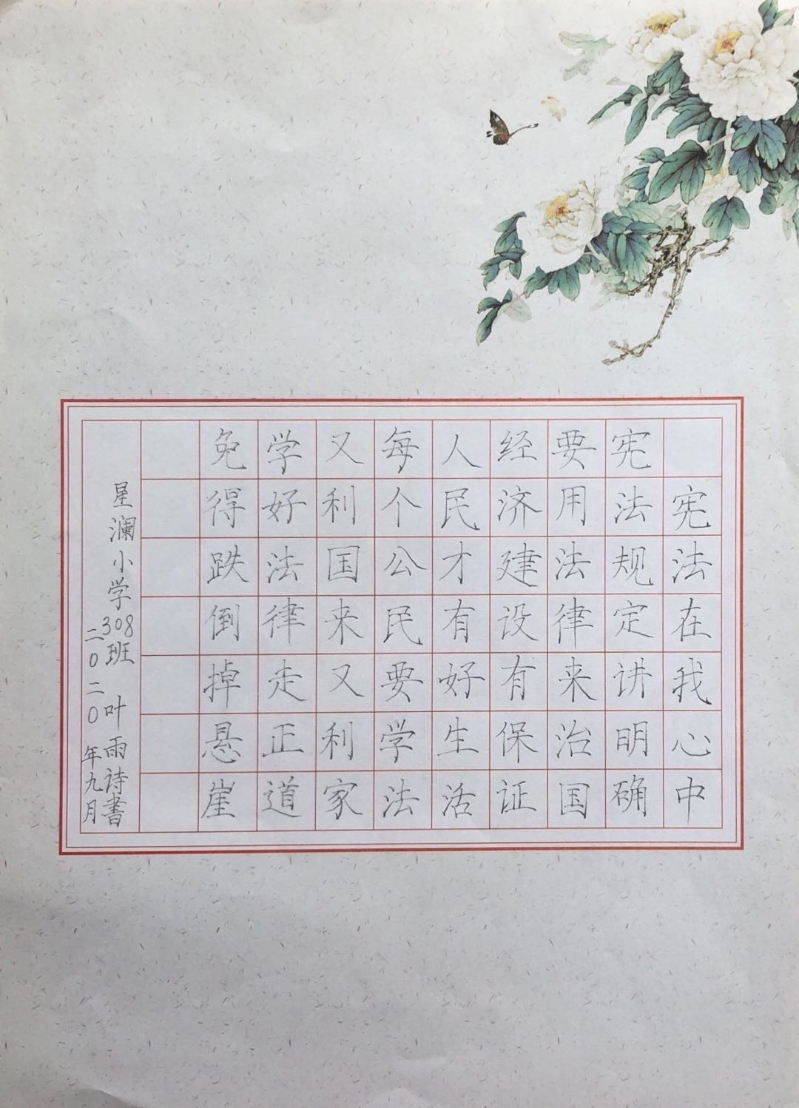 宪法在我心中
宪法规定讲明确
要用法律来治国
经济建设有保证
人民才有好生活
每个公民要学法
又利国来又利家
学好法律走正道
免得跌倒掉悬崖
星澜小学308班 叶雨诗書
二〇二〇年九月